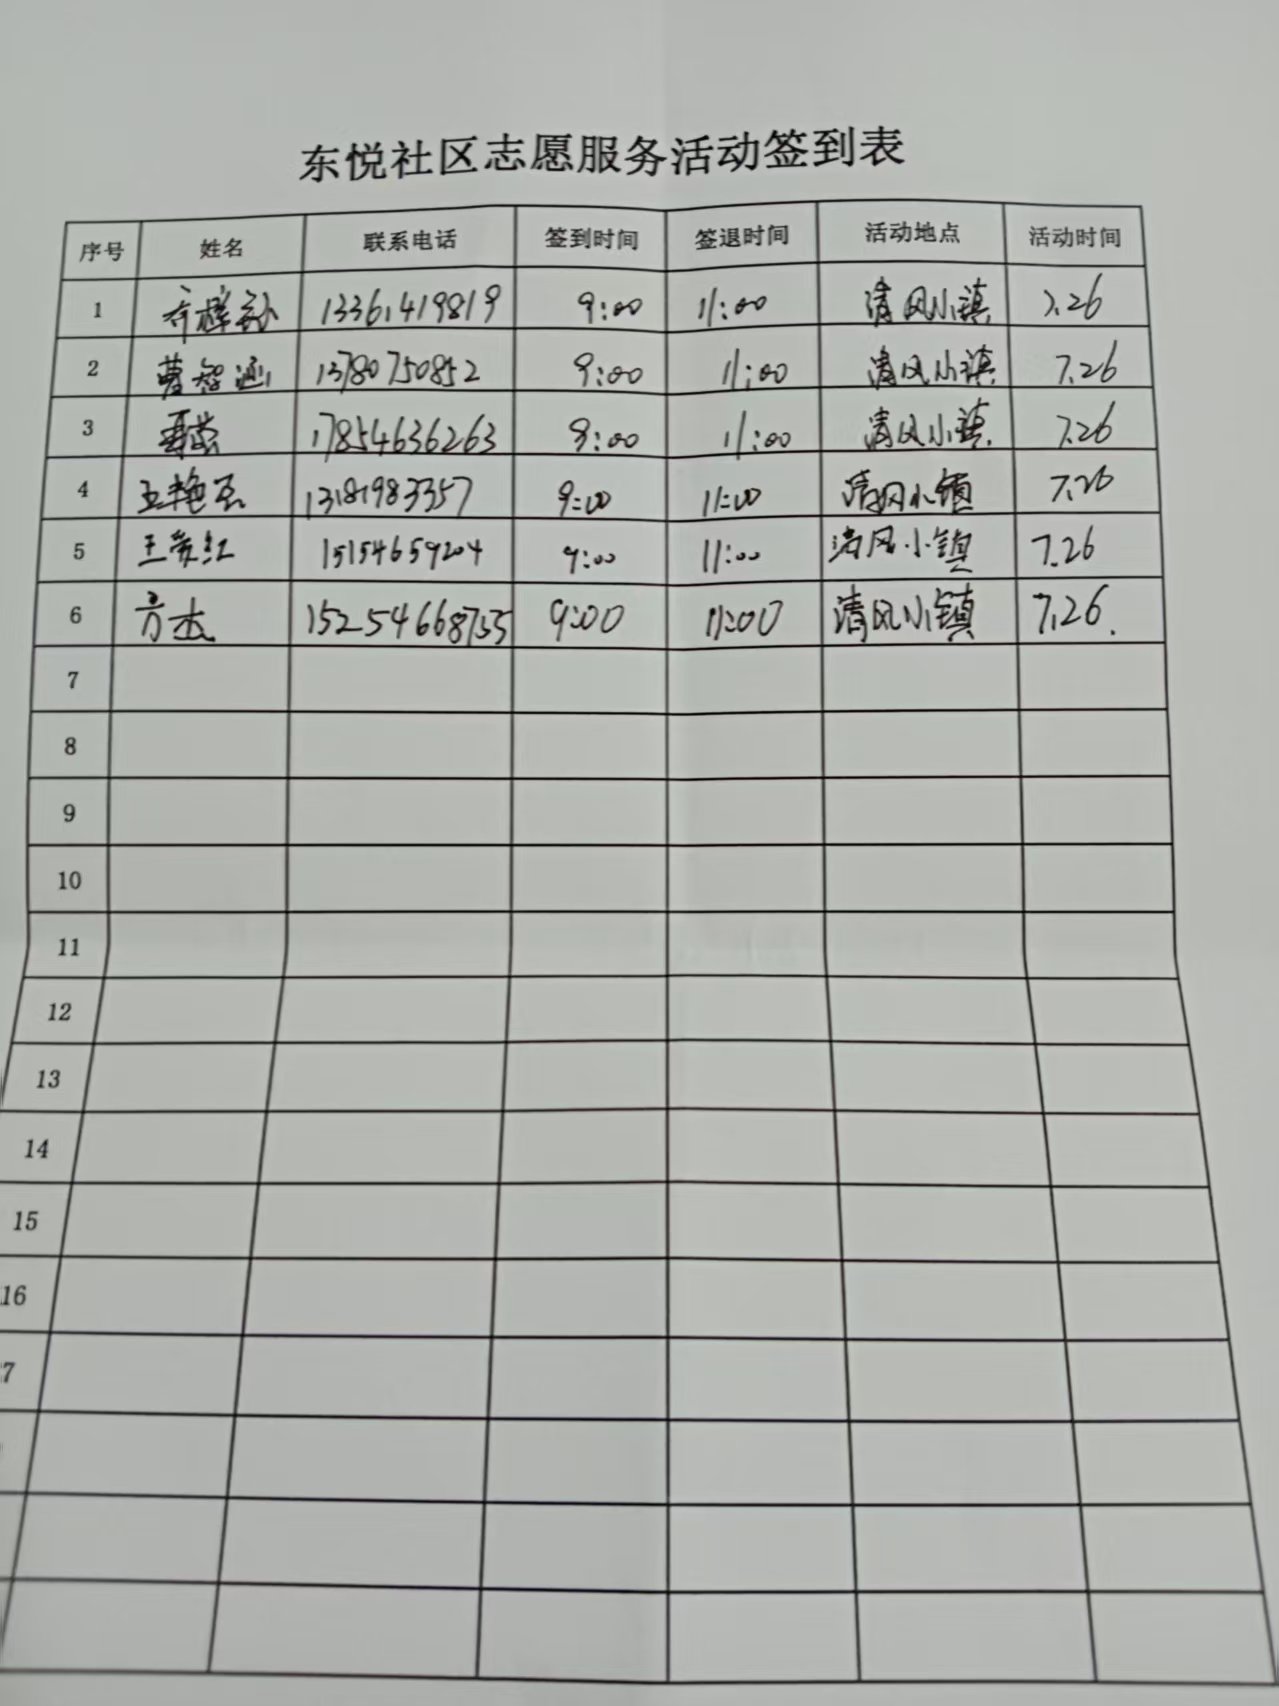 东悦社区志愿服务活动签到表
序号 姓名 联系电话 签到时间 签退时间 活动地点 活动时间
1 13361419819 9:00 11:00 清风小镇 7.26
2 曹智涵 13780750852 9:00 11:00 清风小镇 7.26
3 17854636263 9:00 11:00 清风小镇 7.26
4 王艳玉 13181983357 9:00 11:00 清风小镇 7.26
5 王爱红 15154659204 9:00 11:00 清风小镇 7.26
6 方杰 15254668755 9:00 11:00 清风小镇 7.26.
7
8
9
10
11
12
13
14
15
16
7